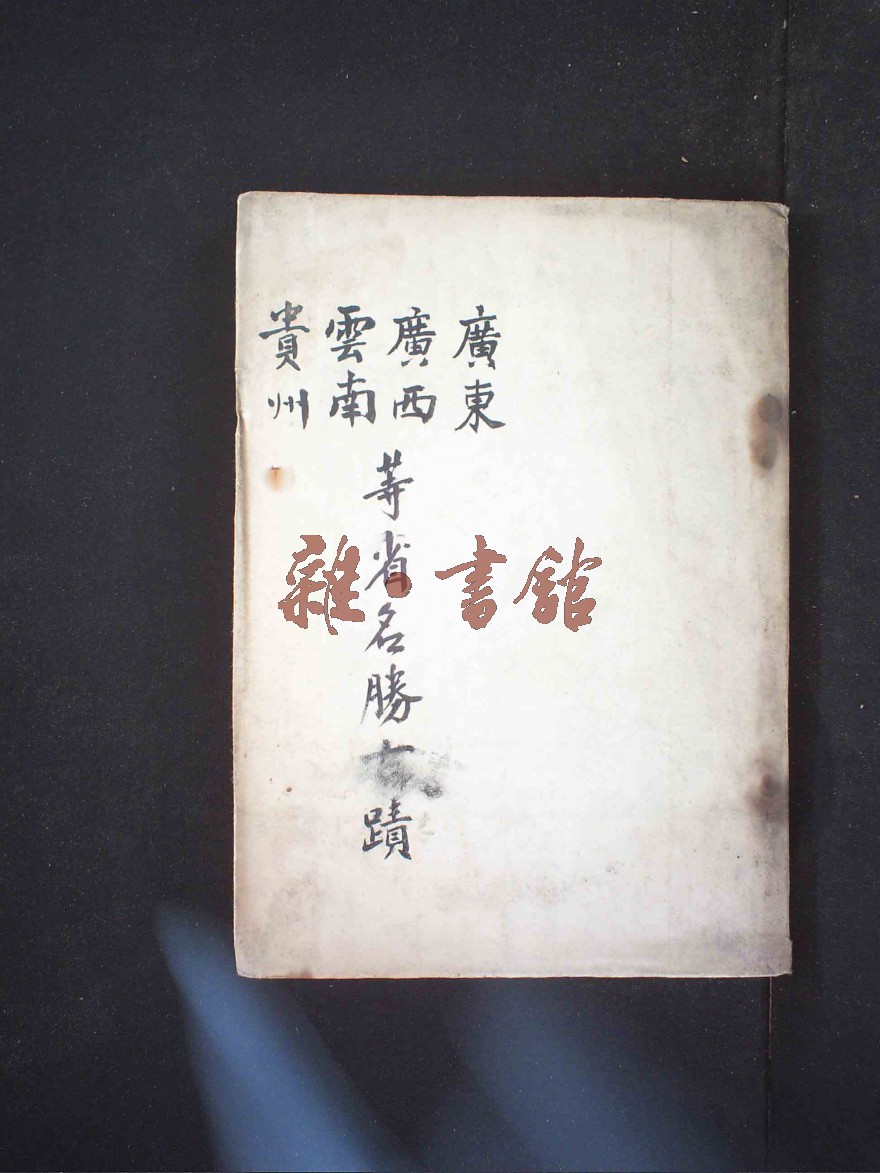 廣東
廣西
雲南
貴州
等省名勝古蹟
雜·書館